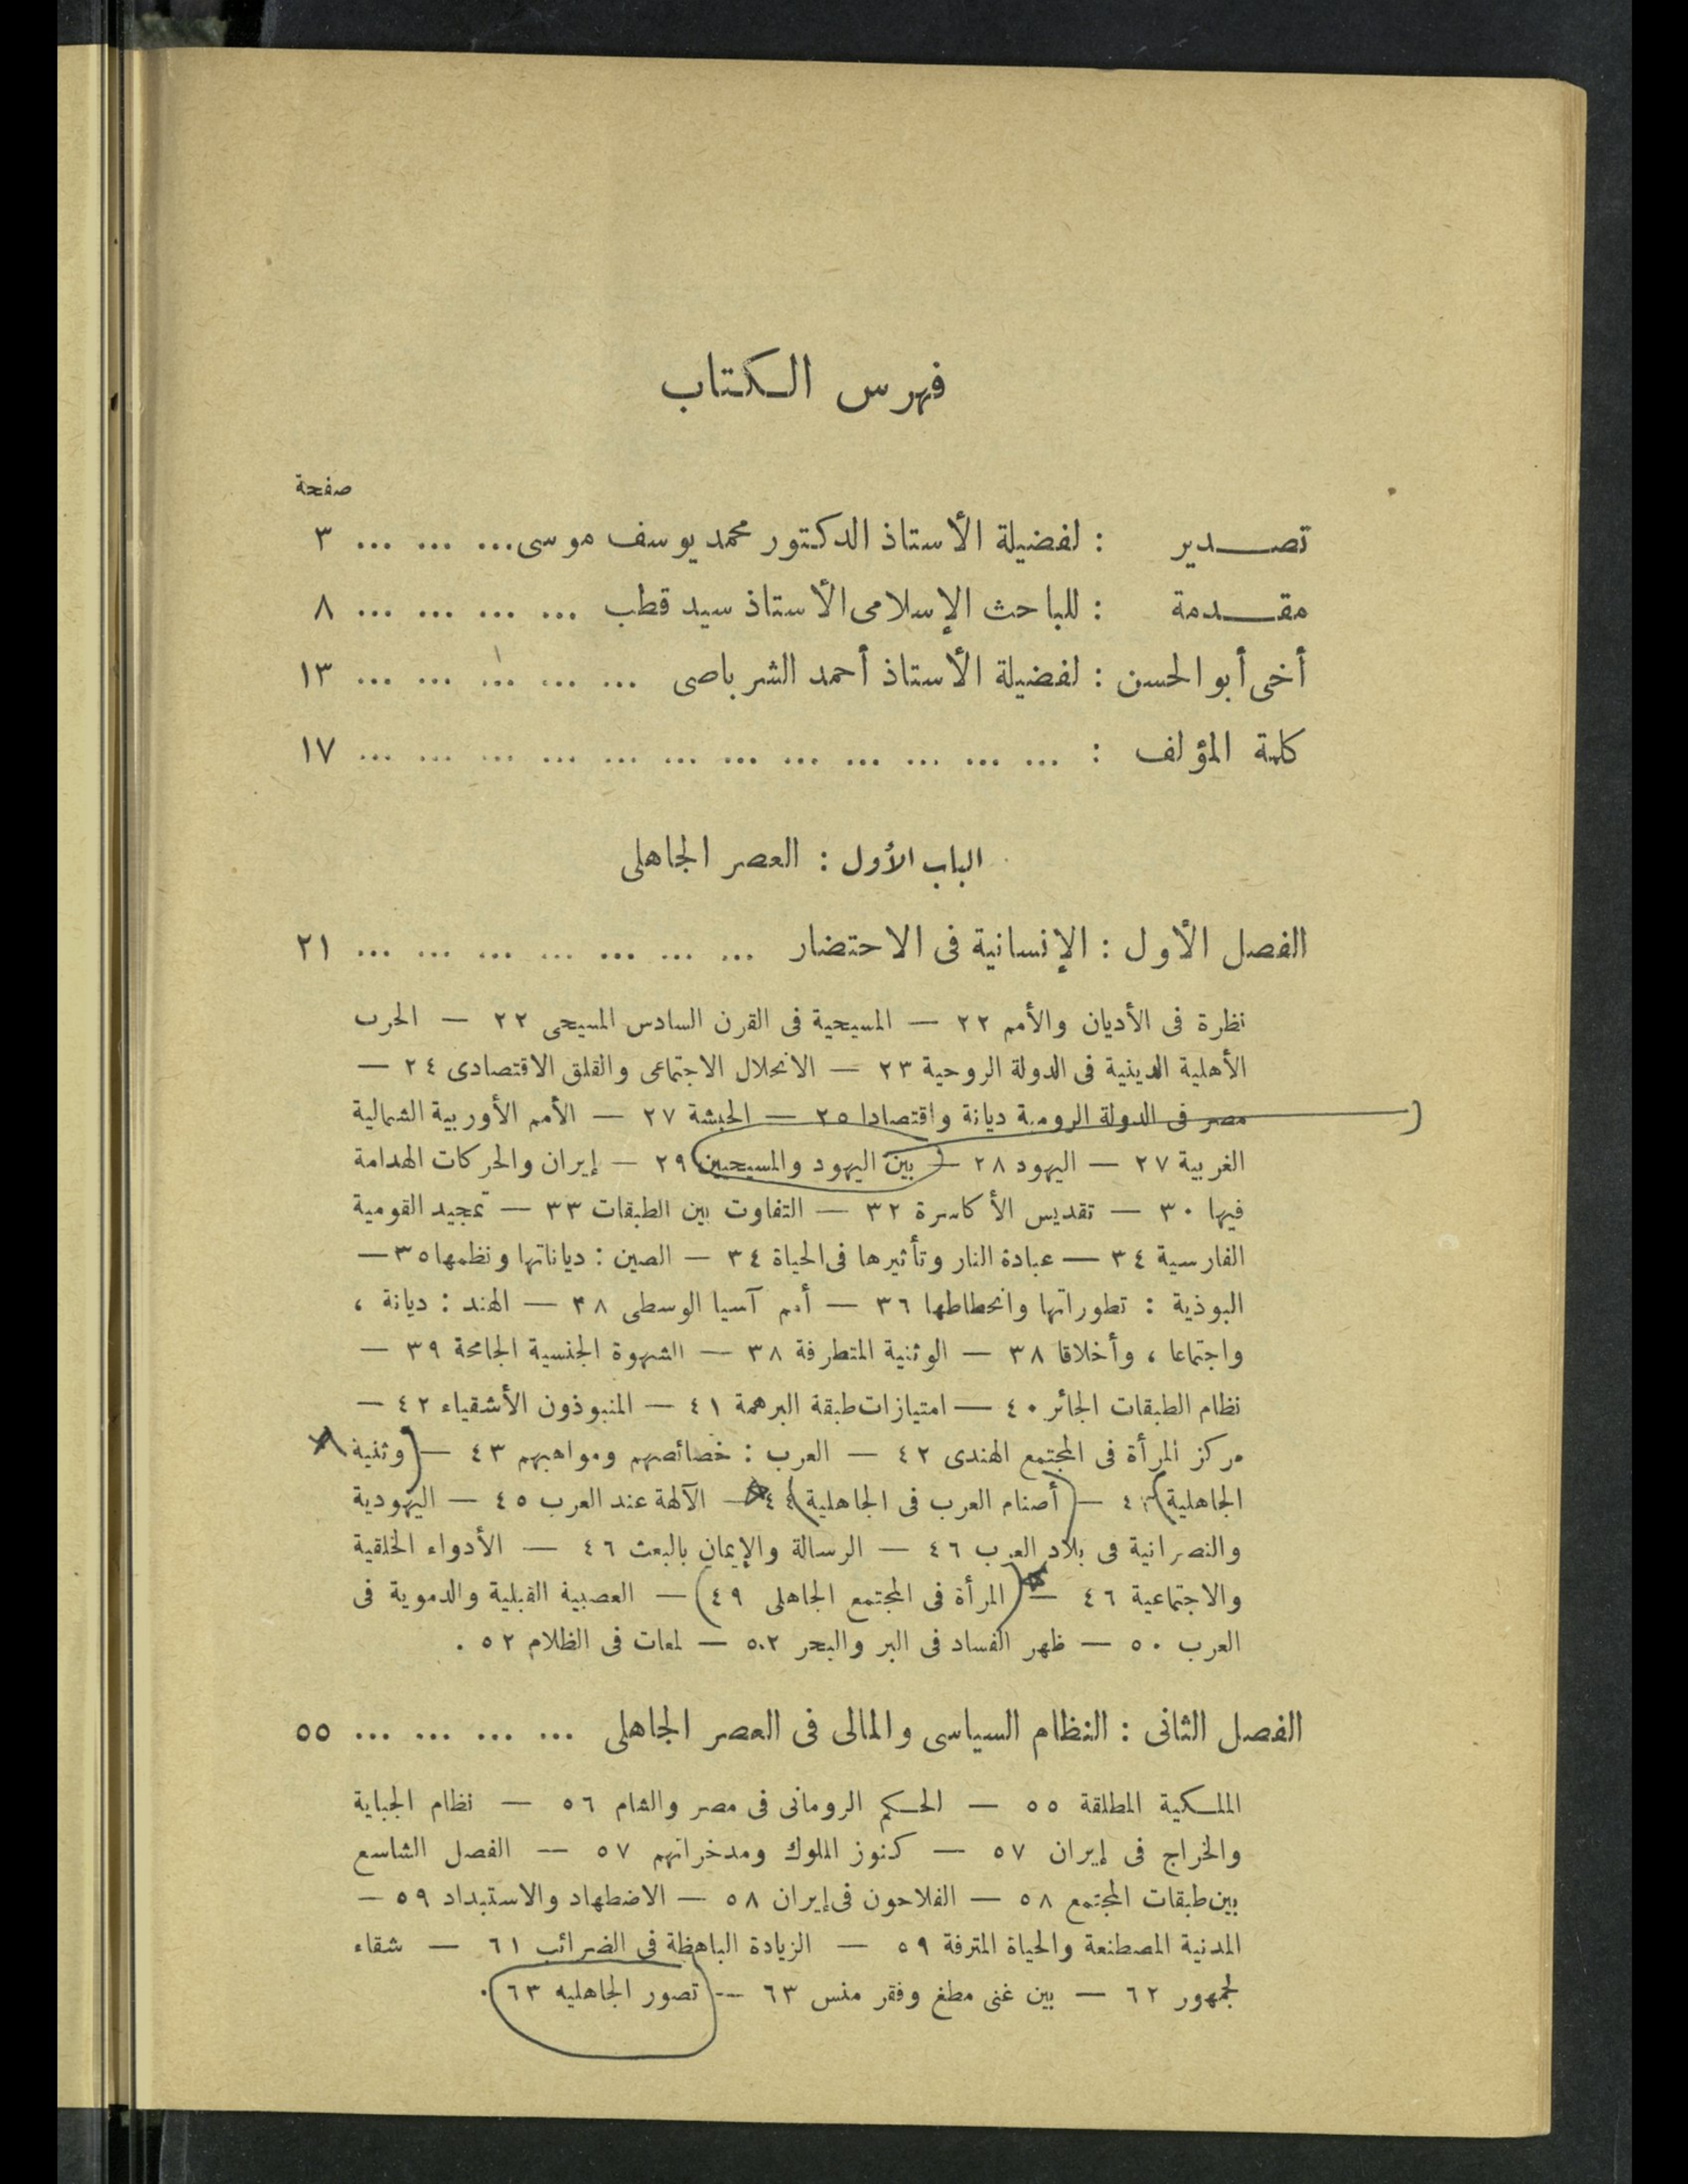 فهرس الكتاب
صفحة
تصدير : لفضيلة الأستاذ الدكتور محمد يوسف موسى ... ... ... ٣
مقدمة : للباحث الإسلامى الأستاذ سيد قطب ... ... ... ... ٨
أخى أبو الحسن : لفضيلة الأستاذ أحمد الشرباصى ... ... ... ... ... ١٣
كلمة المؤلف : ... ... ... ... ... ... ... ... ... ... ... ... ١٧
الباب الأول : العصر الجاهلى
الفصل الأول : الإنسانية فى الاحتضار ... ... ... ... ... ... ... ٢١
نظرة فى الأديان والأمم ٢٢ — المسيحية فى القرن السادس المسيحى ٢٢ — الحرب
الأهلية الدينية فى الدولة الروحية ٢٣ — الانحلال الاجتماعى والقلق الاقتصادى ٢٤ —
مصر فى الدولة الرومية ديانة واقتصادا ٢٥ — الحبشة ٢٧ — الأمم الأوربية الشمالية
الغربية ٢٧ — اليهود ٢٨ — بين اليهود والمسيحيين ٢٩ — إيران والحركات الهدامة
فيها ٣٠ — تقديس الأكاسرة ٣٢ — التفاوت بين الطبقات ٣٣ — تمجيد القومية
الفارسية ٣٤ — عبادة النار وتأثيرها فى الحياة ٣٤ — الصين : دياناتها ونظمها ٣٥ —
البوذية : تطوراتها وانحطاطها ٣٦ — أمم آسيا الوسطى ٣٨ — الهند : ديانة ،
واجتماعا ، وأخلاقا ٣٨ — الوثنية المتطرفة ٣٨ — الشهوة الجنسية الجامحة ٣٩ —
نظام الطبقات الجائر ٤٠ — امتيازات طبقة البرهمة ٤١ — المنبوذون الأشقياء ٤٢ —
مركز المرأة فى المجتمع الهندى ٤٢ — العرب : خصائصهم ومواهبهم ٤٣ — وثنية
الجاهلية ٤٤ — أصنام العرب فى الجاهلية ٤٤ — الآلهة عند العرب ٤٥ — اليهودية
والنصرانية فى بلاد العرب ٤٦ — الرسالة والإيمان بالبعث ٤٦ — الأدواء الخلقية
والاجتماعية ٤٦ — المرأة فى المجتمع الجاهلى ٤٩ — العصبية القبلية والدموية فى
العرب ٥٠ — ظهر الفساد فى البر والبحر ٥٢ — لمعات فى الظلام ٥٢ .
الفصل الثانى : النظام السياسى والمالى فى العصر الجاهلى ... ... ... ... ٥٥
الملكية المطلقة ٥٥ — الحكم الرومانى فى مصر والشام ٥٦ — نظام الجباية
والخراج فى إيران ٥٧ — كنوز الملوك ومدخراتهم ٥٧ — الفصل الشاسع
بين طبقات المجتمع ٥٨ — الفلاحون فى إيران ٥٨ — الاضطهاد والاستبداد ٥٩ —
المدنية المصطنعة والحياة المترفة ٥٩ — الزيادة الباهظة فى الضرائب ٦١ — شقاء
لجمهور ٦٢ — بين غنى مطغ وفقر منس ٦٣ — تصور الجاهليه ٦٣ .